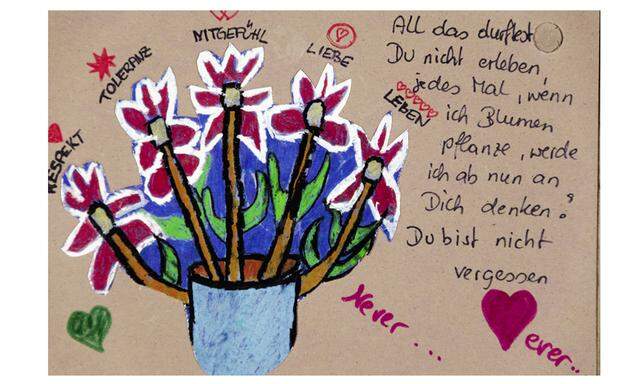 RESPEKT
TOLERANZ
MITGEFÜHL
LIEBE
LEBEN
All das durftest
Du nicht erleben,
jedes Mal, wenn
ich Blumen
pflanze, werde
ich ab nun an
Dich denken.
Du bist nicht
vergessen
Never...
ever..